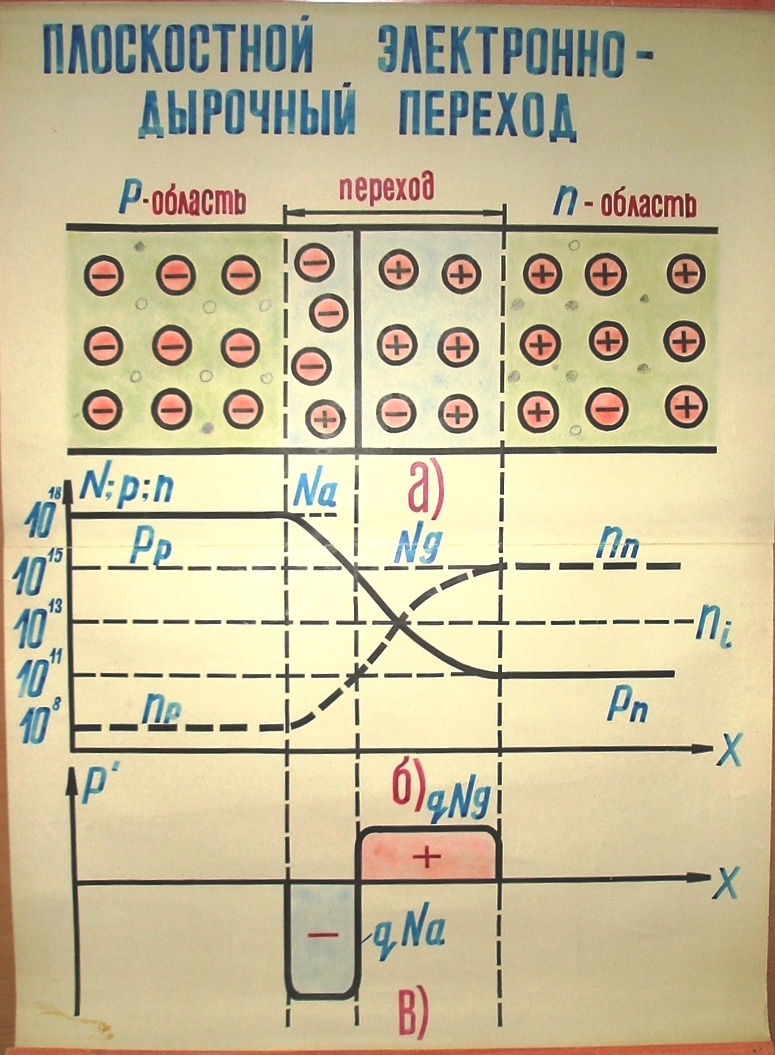 ПЛОСКОСТНОЙ ЭЛЕКТРОННО-
ДЫРОЧНЫЙ ПЕРЕХОД
P-область
переход
n-область
а)
N; p; n
Na
10¹⁸
Pp
Ng
nn
10¹⁵
10¹³
ni
10¹¹
10⁸
np
Pn
X
б)
P'
qNg
+
X
−
qNa
в)